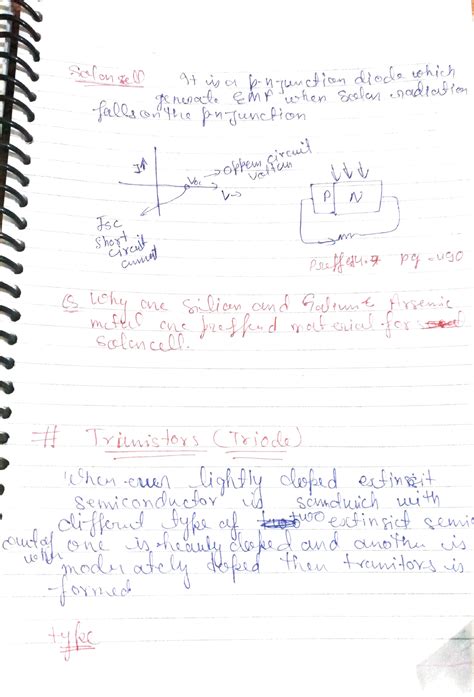 Solar cell It is a p-n junction diode which
generate EMF when Solar radiation
falls on the pn-junction
I
Voc → Oppem circuit
voltan
V →
Isc
Short
circuit
current
P N
Q Why are Silian and Galium Arsenic
metal are preffend material for
Solar cell.
# Trimistors (Triode)
When ever lightly doped extinsit
semiconductor is sandwich with
different type of two extinsict semi
out of one is heavily doped and another is
which moderately doped then tramitors is
formed
type